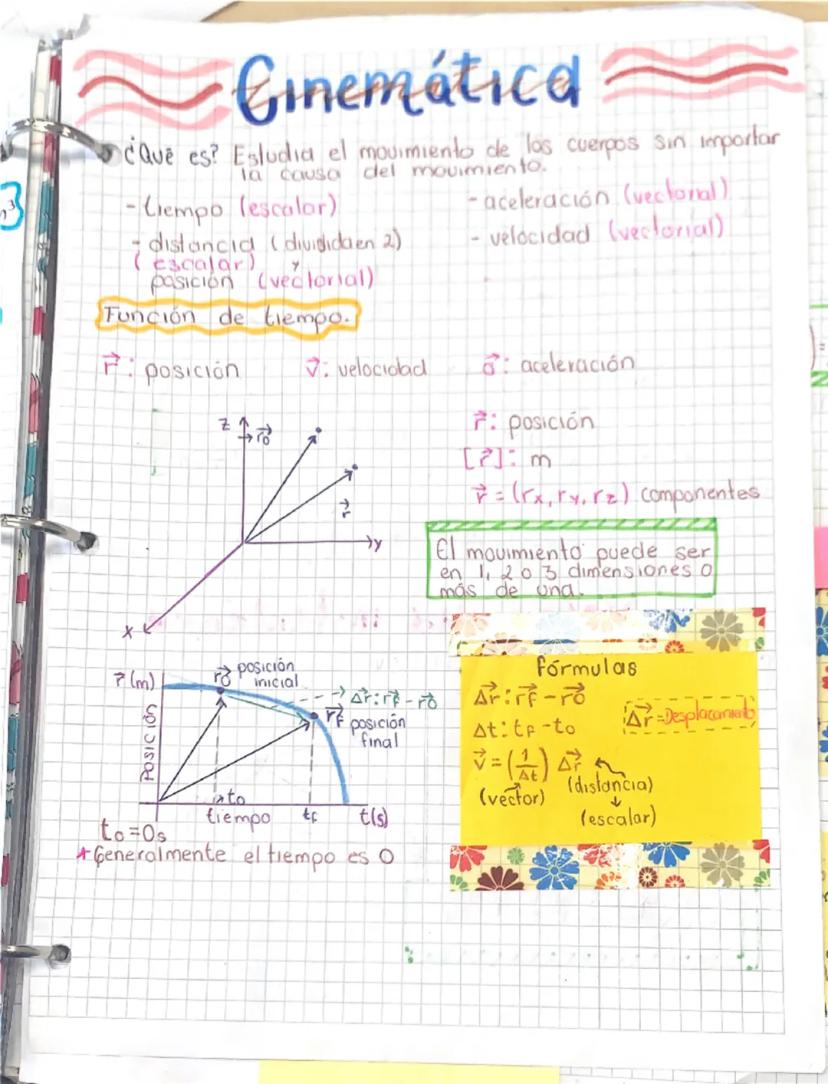 Cinemática
¿Qué es? Estudia el movimiento de los cuerpos sin importar
la causa del movimiento.
- tiempo (escalar)
- distancia (dividida en 2)
(escalar) y
posición (vectorial)
- aceleración (vectorial)
- velocidad (vectorial)
Función de tiempo.
r⃗: posición v⃗: velocidad a⃗: aceleración
z
r⃗o
r⃗
y
x
r⃗: posición
[r⃗]: m
r⃗ = (rx, ry, rz) componentes
El movimiento puede ser
en 1, 2 o 3 dimensiones o
más de una.
r⃗ (m)
Posición
r⃗o posición
inicial
Δr⃗: r⃗f - r⃗o
r⃗f posición
final
to
tiempo
tf
t(s)
to = 0s
*Generalmente el tiempo es 0
Fórmulas
Δr⃗: r⃗f - r⃗o
Δt: tf - to
Δr⃗ = Desplazamiento
v⃗ = (1/Δt) Δr⃗
(vector) (distancia)
(escalar)
3